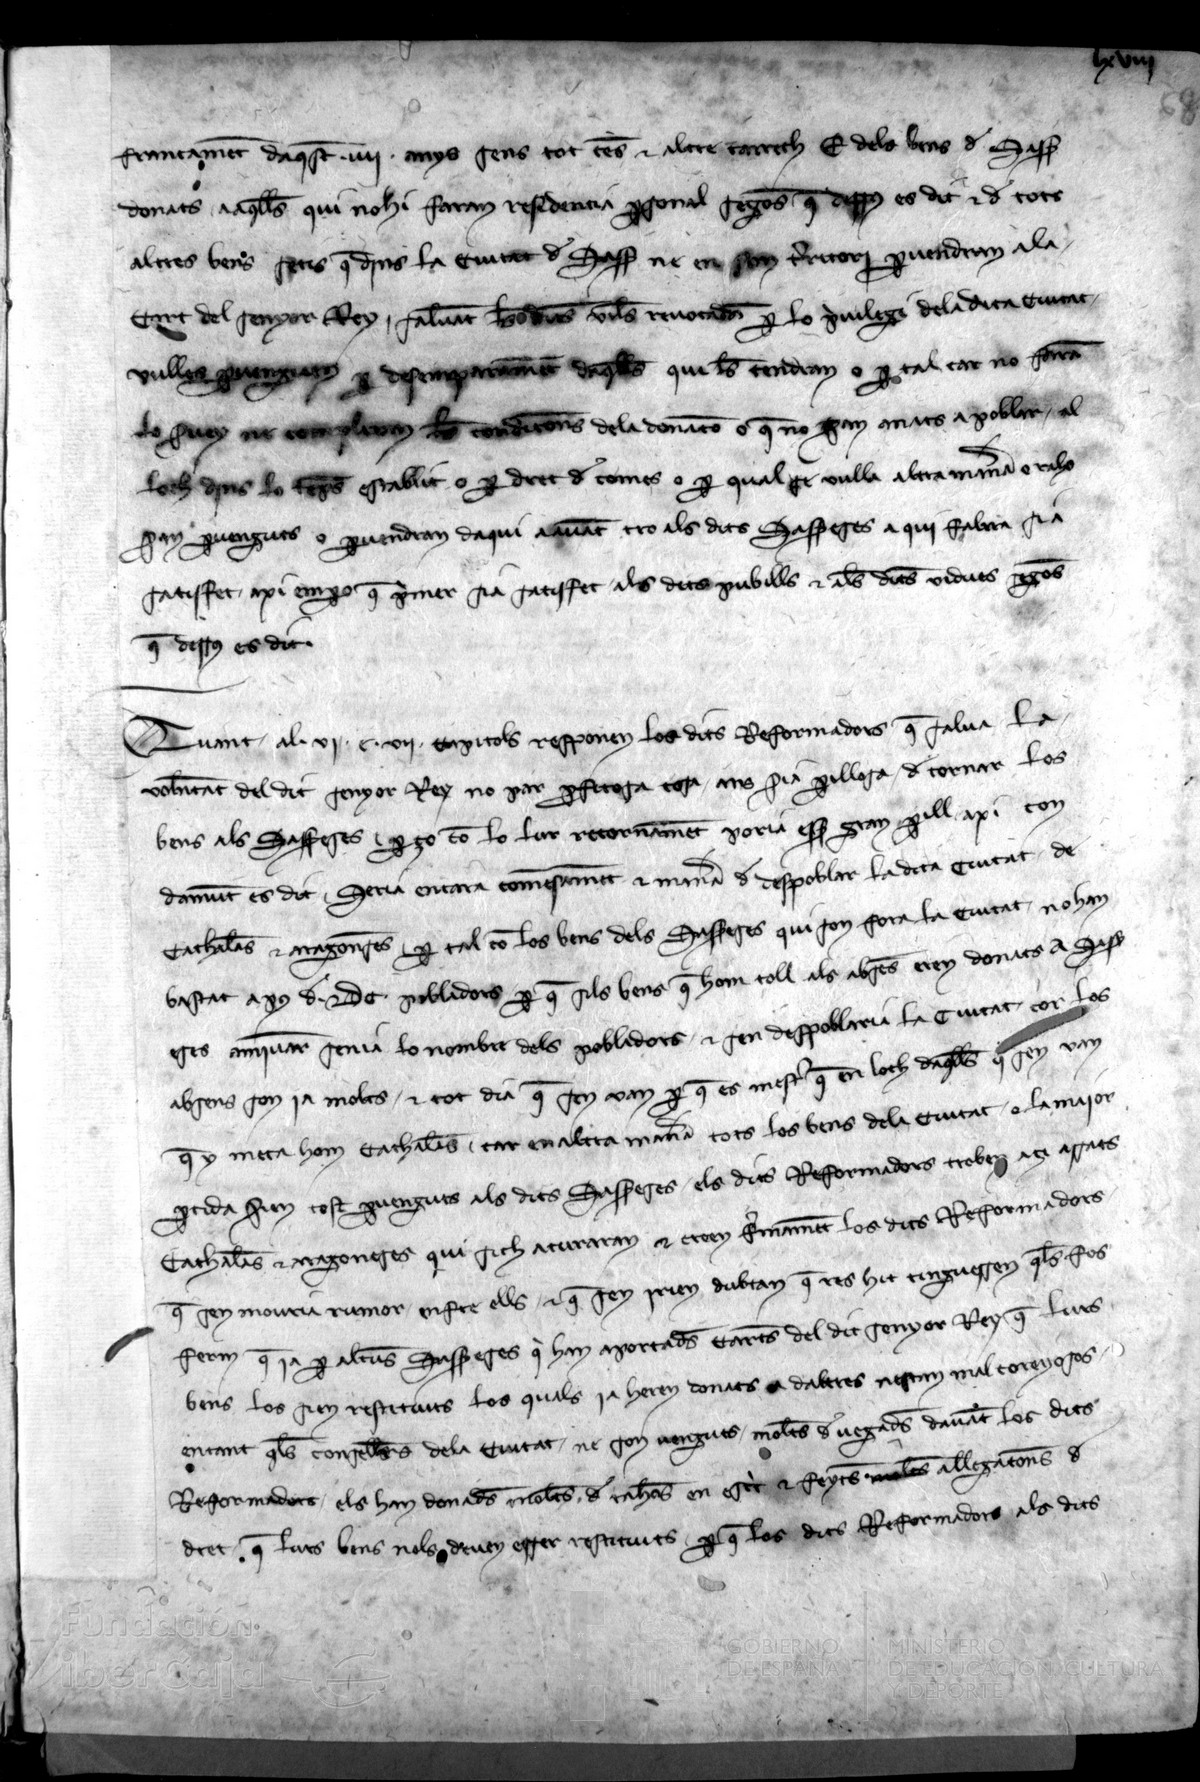 lxviii
68
francamēt daq̄st .vii. anys sens tot cēs & altre carrech E dels bens d Sass
donats a aq̄lls qui nohi faran residencia p̱sonal segōs q̄ dessus es dit & d tots
altres bens setis q̄ dins la Ciutat d Sass ne en son t̄ritori p̱uendran a la
Cort del senyor Rey, saluāt p̱ lo p̱uilegi dela dita Ciutat
vulles p̱uenguen p̱ desemparamēt daq̄lls qui ls̄ tendran o p̱ tal car no faran
lo seruey ne compliran les condicōns dela donacō o q̄ no sian anats a poblar al
loch dins lo tēps establit o p̱ dret d comes o p̱ qual se vulla altra man̄a o raho
sian p̱uenguts o p̱uendran daqui auāt tro als dits Sasseses a qui fahia sia
satisfet, axi emp̱o q̄ p̱mer sia satisfet als dits pubills & als dits vidues segōs
q̄ dessus es dit.
Quant al .vi. e .vii. Capitols responen los dits Reformadors q̄ salua la
volūtat del dit senyor Rey no par p̱fitosa cosa, ans sia p̱illosa d tornar los
bens als Sasseses, p̱ ço cō lo lur retornamēt poria ess̄ gran p̱ill, axi con
damūt es dit, Seria encara comēsamēt & man̄a d despoblar la dita Ciutat de
Cathalās & aragonēses, p̱ tal cō los bens dels Sasseses qui son fora la Ciutat no han
bastat a pus d DC pobladors p̱ q̄ sils bens q̄ hom toll als absēs eren donats a Sass
eses amīuar senia lo nombre dels pobladors, & sen despoblaria la Ciutat, cor los
absens son ia molts, & tot dia q̄ sen van p̱ q̄ es mest̄ q̄ en loch daq̄lls q̄ sen van
q̄ y meta hom Cathalās, car en altra man̄a tots los bens dela Ciutat o la maior
p̱tida serien tost p̱uenguts als dits Sasseses, els dits Reformadors troben aci assats
Cathalās & aragoneses qui sich aturaran & creen f̄mamēt los dits Reformadors
q̄ sen mouria rumor enfre ells, & q̄ sen irien dubtan q̄ res hic tinguessen q̄ls fos
ferm q̄ ia p̱ alcūs Sasseses q̄ han aportads Cartes del dit senyor Rey q̄ lurs
bens los sien restituits los quals ia heren donats a daltres nestan mal coreyosos
entant q̄ls consellers dela Ciutat ne son venguts moltes d vegads dauāt los dits
Reformadors, els han donads moltes d rahōs en esc̄t & feytes moltes allegacōns d
dret, q̄ lurs bens nols deuen esser restituits, p̱ q̄ los dits Reformadors als dits
Fundación
iberCaja
GOBIERNO
DE ESPAÑA
MINISTERIO
DE EDUCACIÓN, CULTURA
Y DEPORTE